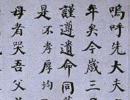 嗚呼先大夫
年矣今歲三
謹遵遺命同
是不孝厚均
母者哭吾父